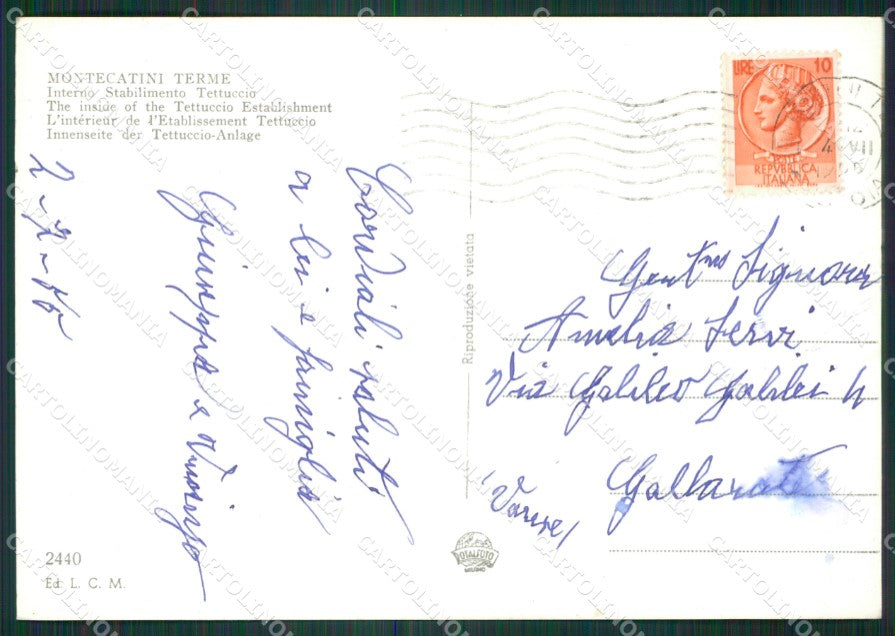 MONTECATINI TERME
Interno Stabilimento Tettuccio
The inside of the Tettuccio Establishment
L'intérieur de l'Etablissement Tettuccio
Innenseite der Tettuccio-Anlage
2-7-66
Cordiali saluti
a lei e famiglia
Giuseppa e
Riproduzione vietata
LIRE 10
REPUBBLICA
ITALIANA
Gent.ma Signora
Amelia Servi
Via Galileo Galilei 4
Gallarate
(Varese)
2440
Ed. L. C. M.
TOTALFOTO
MILANO
CARTOLINOMANIA